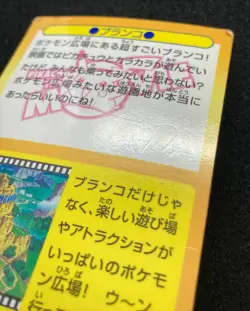 ●ブランコ●
ポケモン広場にある超すごいブランコ!
映画ではピカチュウとカラカラが遊んでい
たけど、みんなも乗ってみたいと思わない?
ポケモン広場みたいな遊園地が本当に
あったらいいのにね!
ブランコだけじゃ
なく、楽しい遊び場
やアトラクションが
いっぱいのポケモ
ン広場! ウ〜ン
行っ